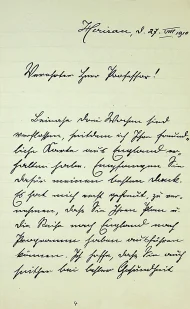 Herisau, d. 27. VIII 1910
Verehrter Herr Professor!
Beinahe drei Wochen sind
verflossen, seitdem ich Ihre freund-
liche Karte aus England er-
halten habe. Empfangen Sie
dafür meinen besten Dank.
Es hat mich recht gefreut, zu ver-
nehmen, daß Sie Ihren Plan
die Reise nach England nach
Programm haben ausführen
können. Ich hoffe, daß Sie auch
seither bei bester Gesundheit